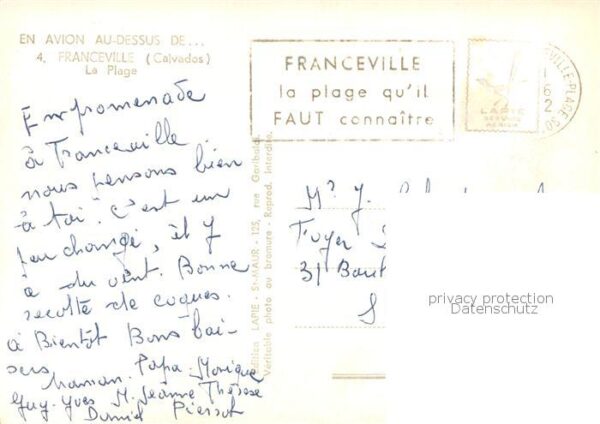 EN AVION AU-DESSUS DE...
4. FRANCEVILLE (Calvados)
La Plage
FRANCEVILLE
la plage qu'il
FAUT connaître
LAPIE
SERVICE
AÉRIEN
En promenade
à Franceville
nous pensons bien
à toi. C'est un
peu changé, il y
a du vent. Bonne
recolte de coques.
à Bientôt Bons bai-
sers
Maman. Papa. Monique
Guy. Yves M. Jeanne Thérèse
Daniel Pierrot
Edition LAPIE - St-MAUR - 125, rue Garibaldi
Véritable photo au bromure - Reprod. Interdite.
Mr J.
Foyer
31 Boul
S
privacy protection
Datenschutz